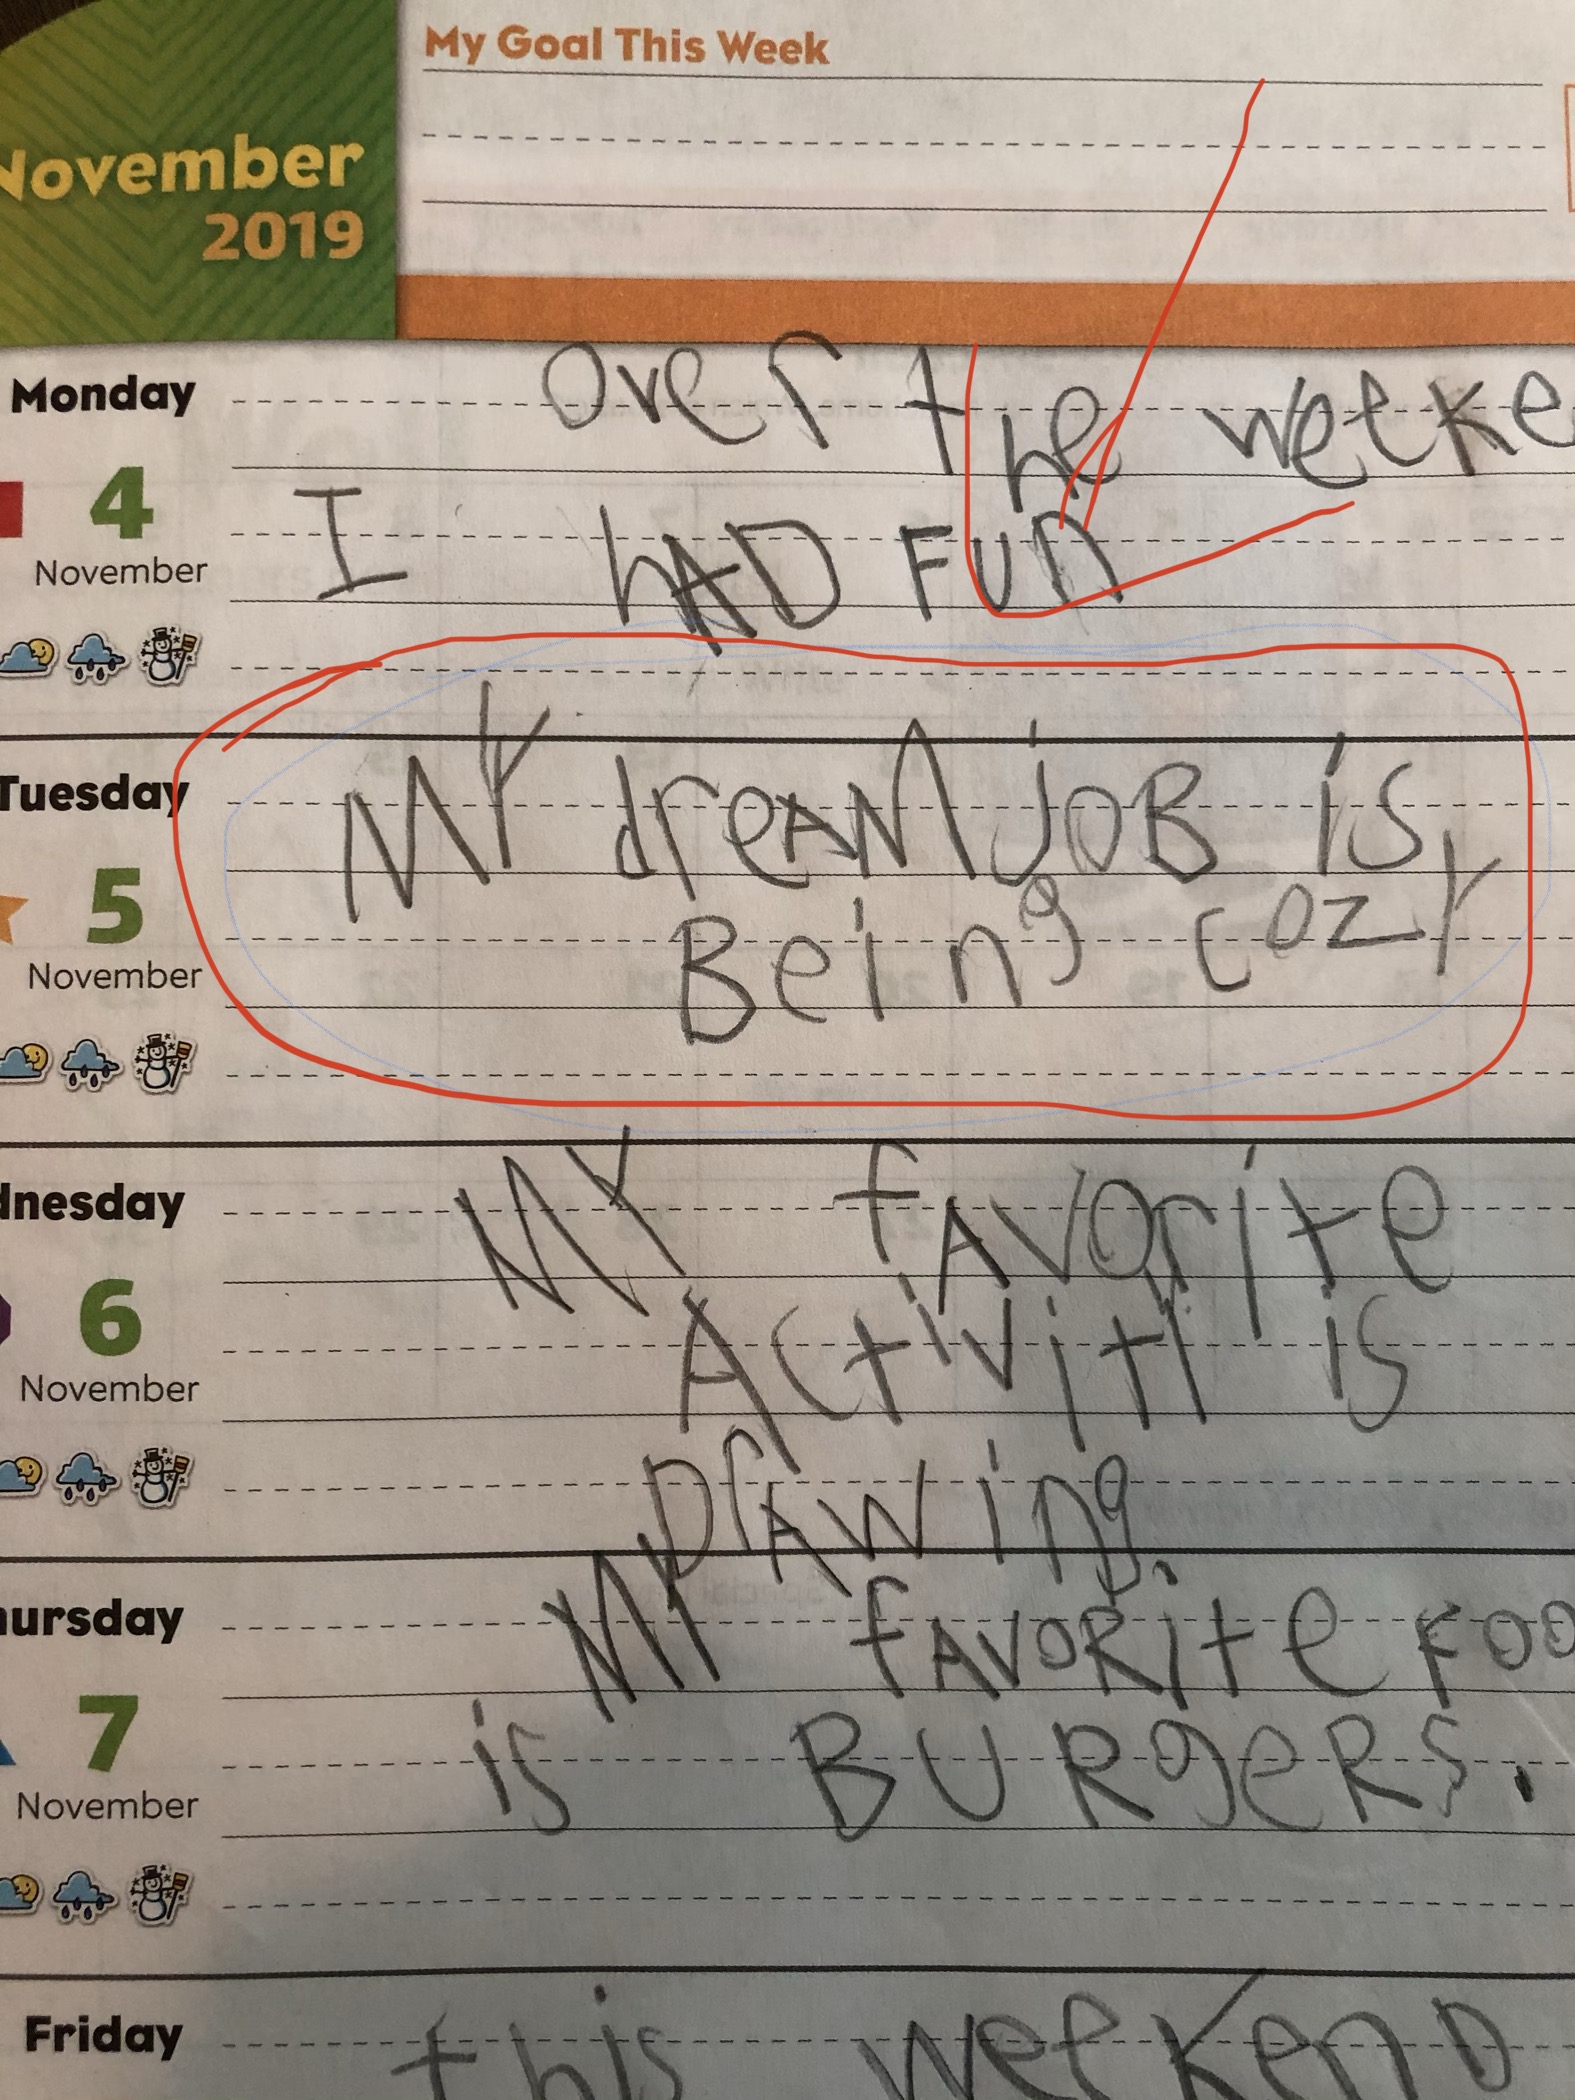 My Goal This Week
November
2019
Monday
over the weeke
4
I hAD FUn
November
Tuesday
MY dreAM joB is
5
Being cozY
November
dnesday
MY fAvorite
6
Activity is
November
DrAwing.
hursday
MY fAvoRite Foo
7
is BURgeRs.
November
Friday
this weekenD